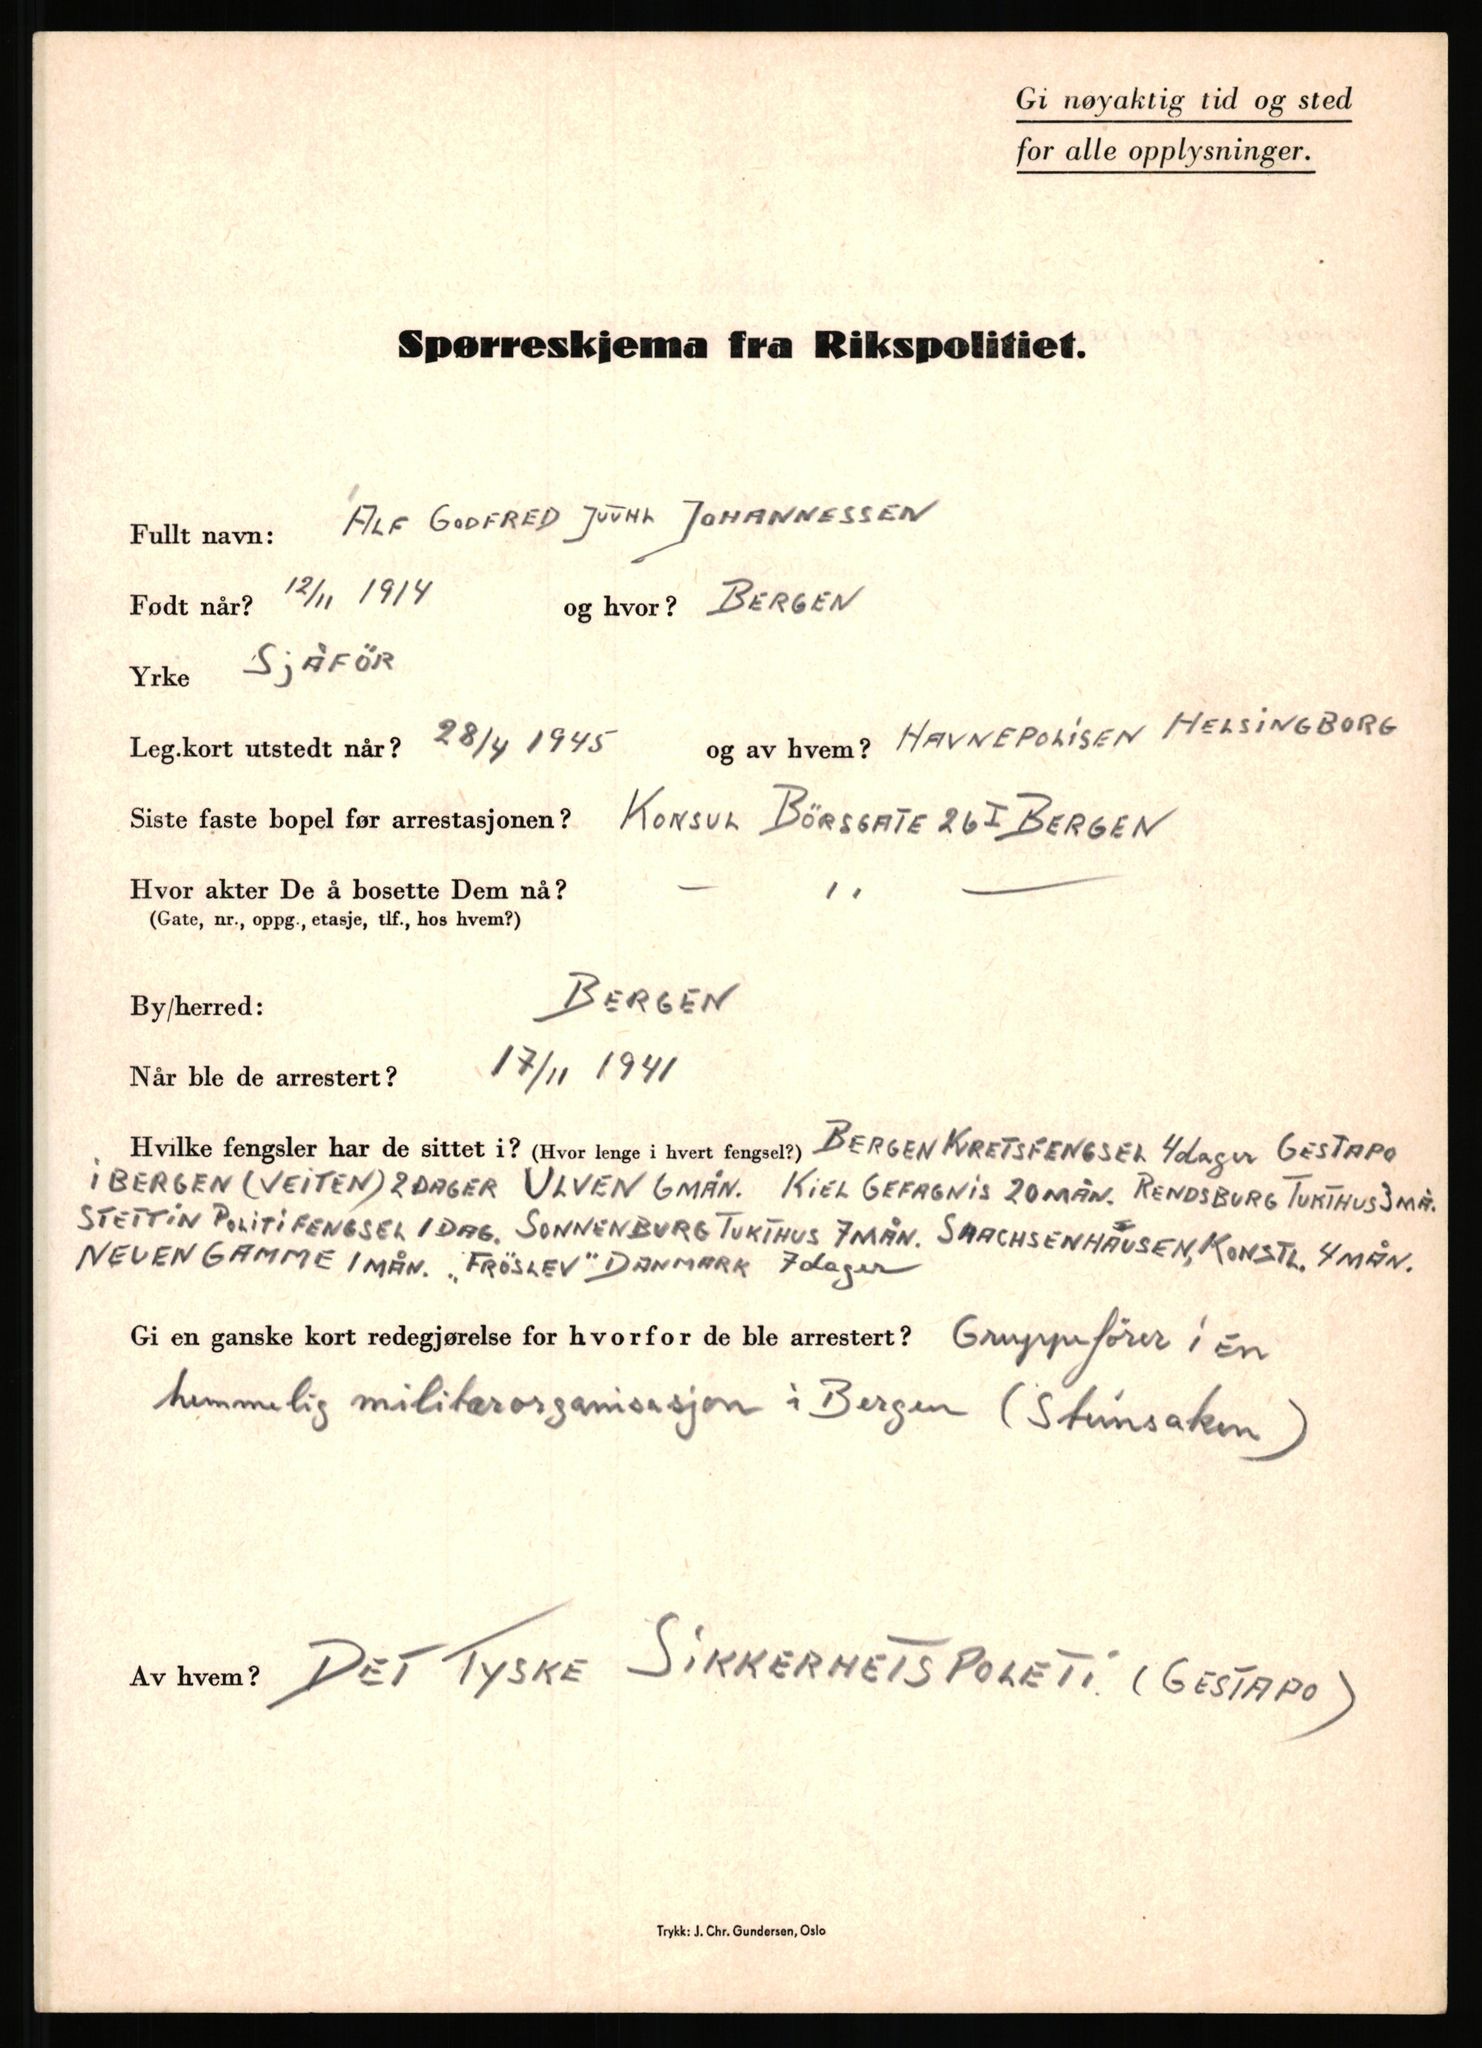 Gi nøyaktig tid og sted
for alle opplysninger.
Spørreskjema fra Rikspolitiet.
Fullt navn: ALF GODFRED JUUHL JOHANNESSEN
Født når? 12/11 1914 og hvor? BERGEN
Yrke SJÅFÖR
Leg.kort utstedt når? 28/4 1945 og av hvem? HAVNEPOLISEN HELSINGBORG
Siste faste bopel før arrestasjonen? KONSUL BÖRSGATE 26 I BERGEN
Hvor akter De å bosette Dem nå? — ,, —
(Gate, nr., oppg., etasje, tlf., hos hvem?)
By/herred: BERGEN
Når ble de arrestert? 17/11 1941
Hvilke fengsler har de sittet i? (Hvor lenge i hvert fengsel?) BERGEN KRETSFENGSEL 4 dager GESTAPO
i BERGEN (VEITEN) 2 DAGER ULVEN 6 MÅN. KIEL GEFAGNIS 20 MÅN. RENDSBURG TUKTHUS 3 MÅ.
STETTIN POLITIFENGSEL 1 DAG. SONNENBURG TUKTHUS 7 MÅN. SAACHSENHAUSEN, KONSTL. 4 MÅN.
NEUENGAMME 1 MÅN. „FRÖSLEV" DANMARK 7 dager
Gi en ganske kort redegjørelse for hvorfor de ble arrestert? Gruppefører i en
hemmelig militærorganisasjon i Bergen (Steinsaken)
Av hvem? DET TYSKE SIKKERHETSPOLETI. (GESTAPO)
Trykk: J. Chr. Gundersen, Oslo